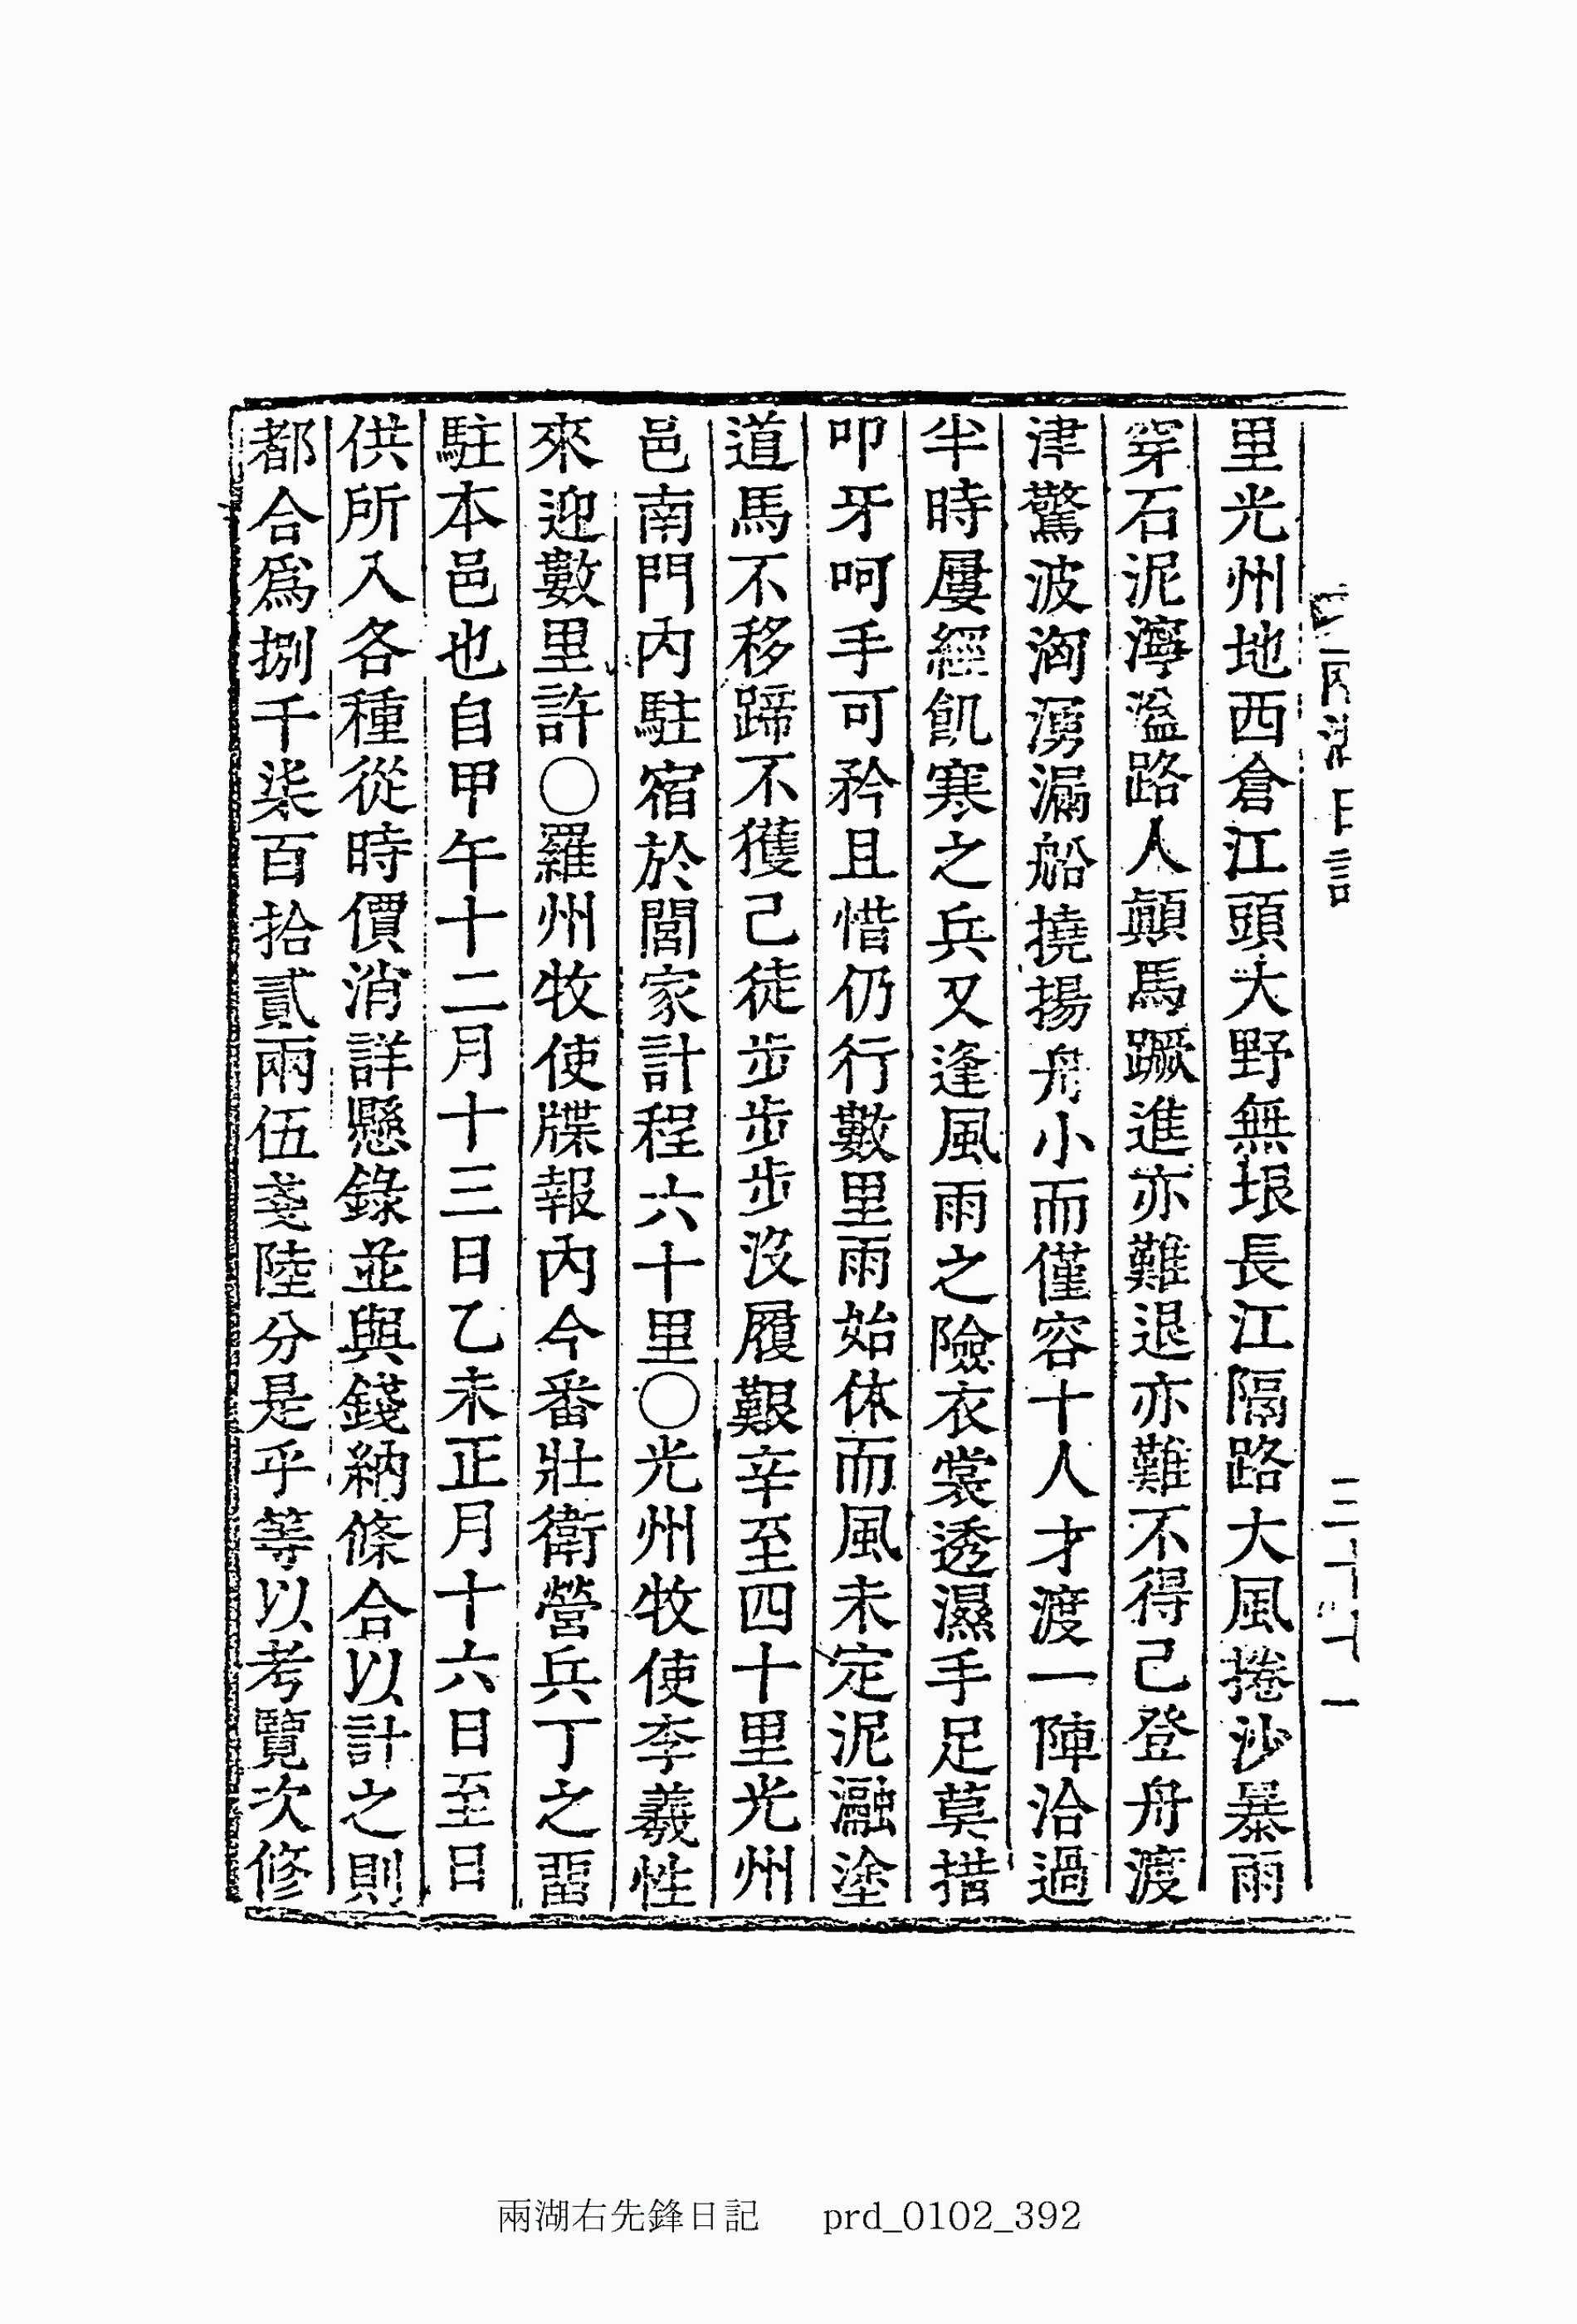 里光州地西倉江頭大野無垠長江隔路大風捲沙暴雨
穿石泥濘溢路人顚馬蹶進亦難退亦難不得已登舟渡
津驚波洶湧漏船撓揚舟小而僅容十人才渡一陣洽過
半時屢經飢寒之兵又逢風雨之險衣裳透濕手足莫措
叩牙呵手可矜且惜仍行數里雨始休而風未定泥融塗
道馬不移蹄不獲已徒步步步沒履艱辛至四十里光州
邑南門內駐宿於閭家計程六十里〇光州牧使李羲性
來迎數里許〇羅州牧使牒報內今番壯衛營兵丁之留
駐本邑也自甲午十二月十三日乙未正月十六日至日
供所入各種從時價消詳懸錄並與錢納條合以計之則
都合爲捌千柒百拾貳兩伍戔陸分是乎等以考覽次修
兩湖右先鋒日記 prd_0102_392